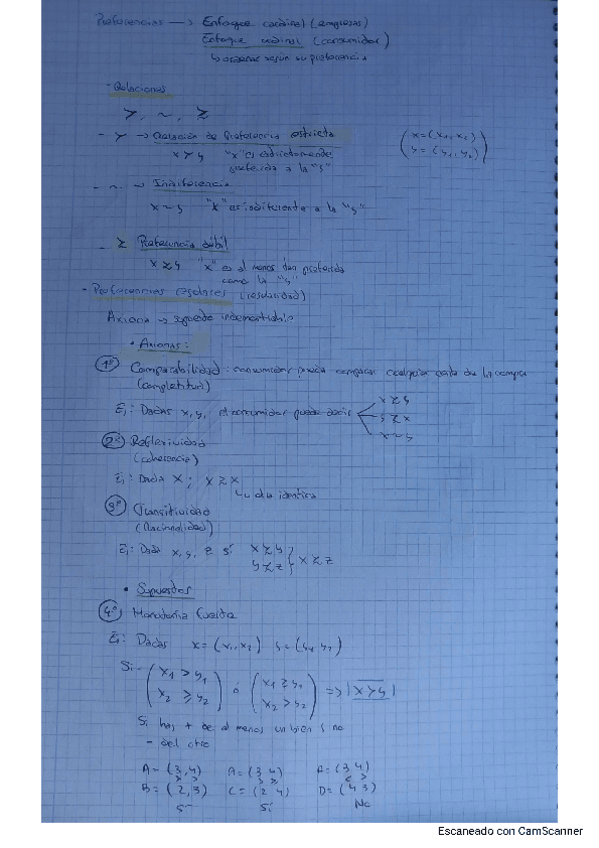 Preferencias → Enfoque cardinal (empresas)
Enfoque ordinal (consumidor)
↳ ordenar según su preferencia
- Relaciones
≻, ~, ≿
- ≻ → Relación de Preferencia estricta
x ≻ y "x" es estrictamente preferida a la "y"
(x = (x₁, x₂)
y = (y₁, y₂))
- ~ → Indiferencia
x ~ y "x" es indiferente a la "y"
- ≿ Preferencia débil
x ≿ y "x" es al menos tan preferida como la "y"
- Preferencias regulares (regularidad)
Axioma → supuesto indemostrable
• Axiomas:
1º Comparabilidad: consumidor puede comparar cualquier cesta de la compra
(completitud)
Ej: Dadas x, y, el consumidor puede decir
x ≿ y
y ≿ x
x ~ y
2º Reflexividad
(coherencia)
Ej: Dada x; x ≿ x
↳ idéntica
3º Transitividad
(Racionalidad)
Ej: Dadas x, y, z si x ≿ y
y ≿ z } x ≿ z
• Supuestos
4º Monotonía Fuerte
Ej: Dadas x = (x₁, x₂) y = (y₁, y₂)
Si (x₁ > y₁
x₂ ≥ y₂) ó (x₁ ≥ y₁
x₂ > y₂) ⇒ |x ≻ y|
Si hay + de al menos un bien y no
- del otro
A = (3, 4) A = (3 4) A = (3 4)
B = (2, 3) C = (2 4) D = (4 3)
Sí Sí No
Escaneado con CamScanner